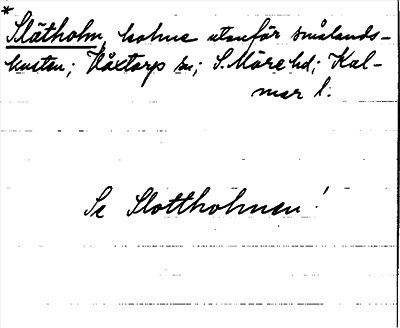 *
Slätholm, holme utanför smålands-
kusten; Växtorp sn; S. Möre hd; Kal-
mar l.
Se Slottholmen!